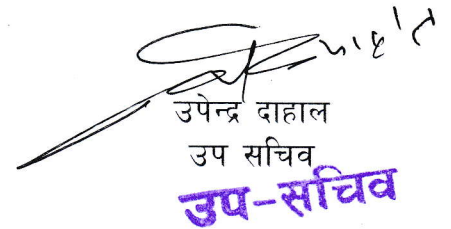 उपेन्द्र दाहाल
उप सचिव
उप-सचिव